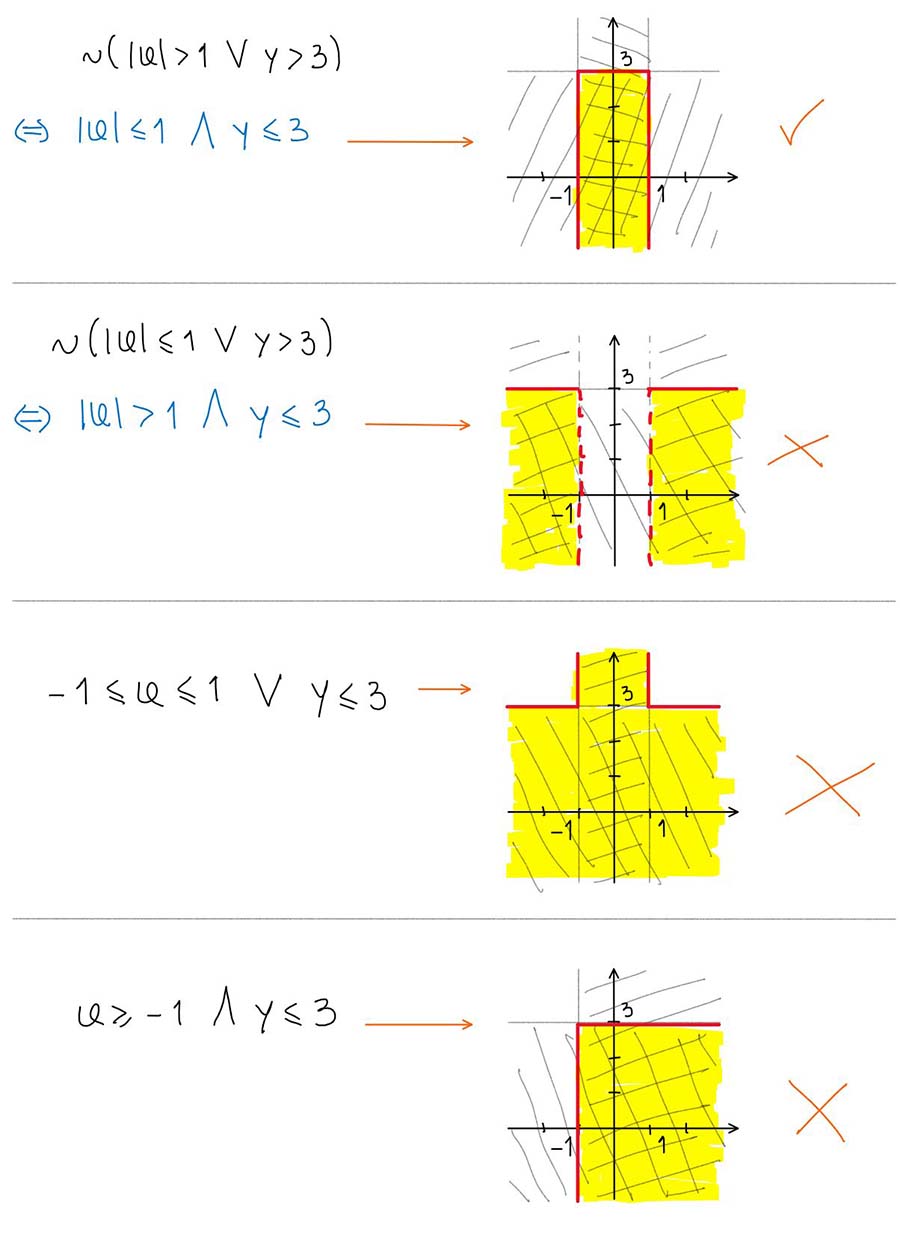 ~(|x|>1 ∨ y>3)
3
⇔ |x|≤1 ∧ y≤3
-1 1
~(|x|≤1 ∨ y>3)
3
⇔ |x|>1 ∧ y≤3
-1 1
-1≤x≤1 ∨ y≤3
3
-1 1
x≥-1 ∧ y≤3
3
-1 1